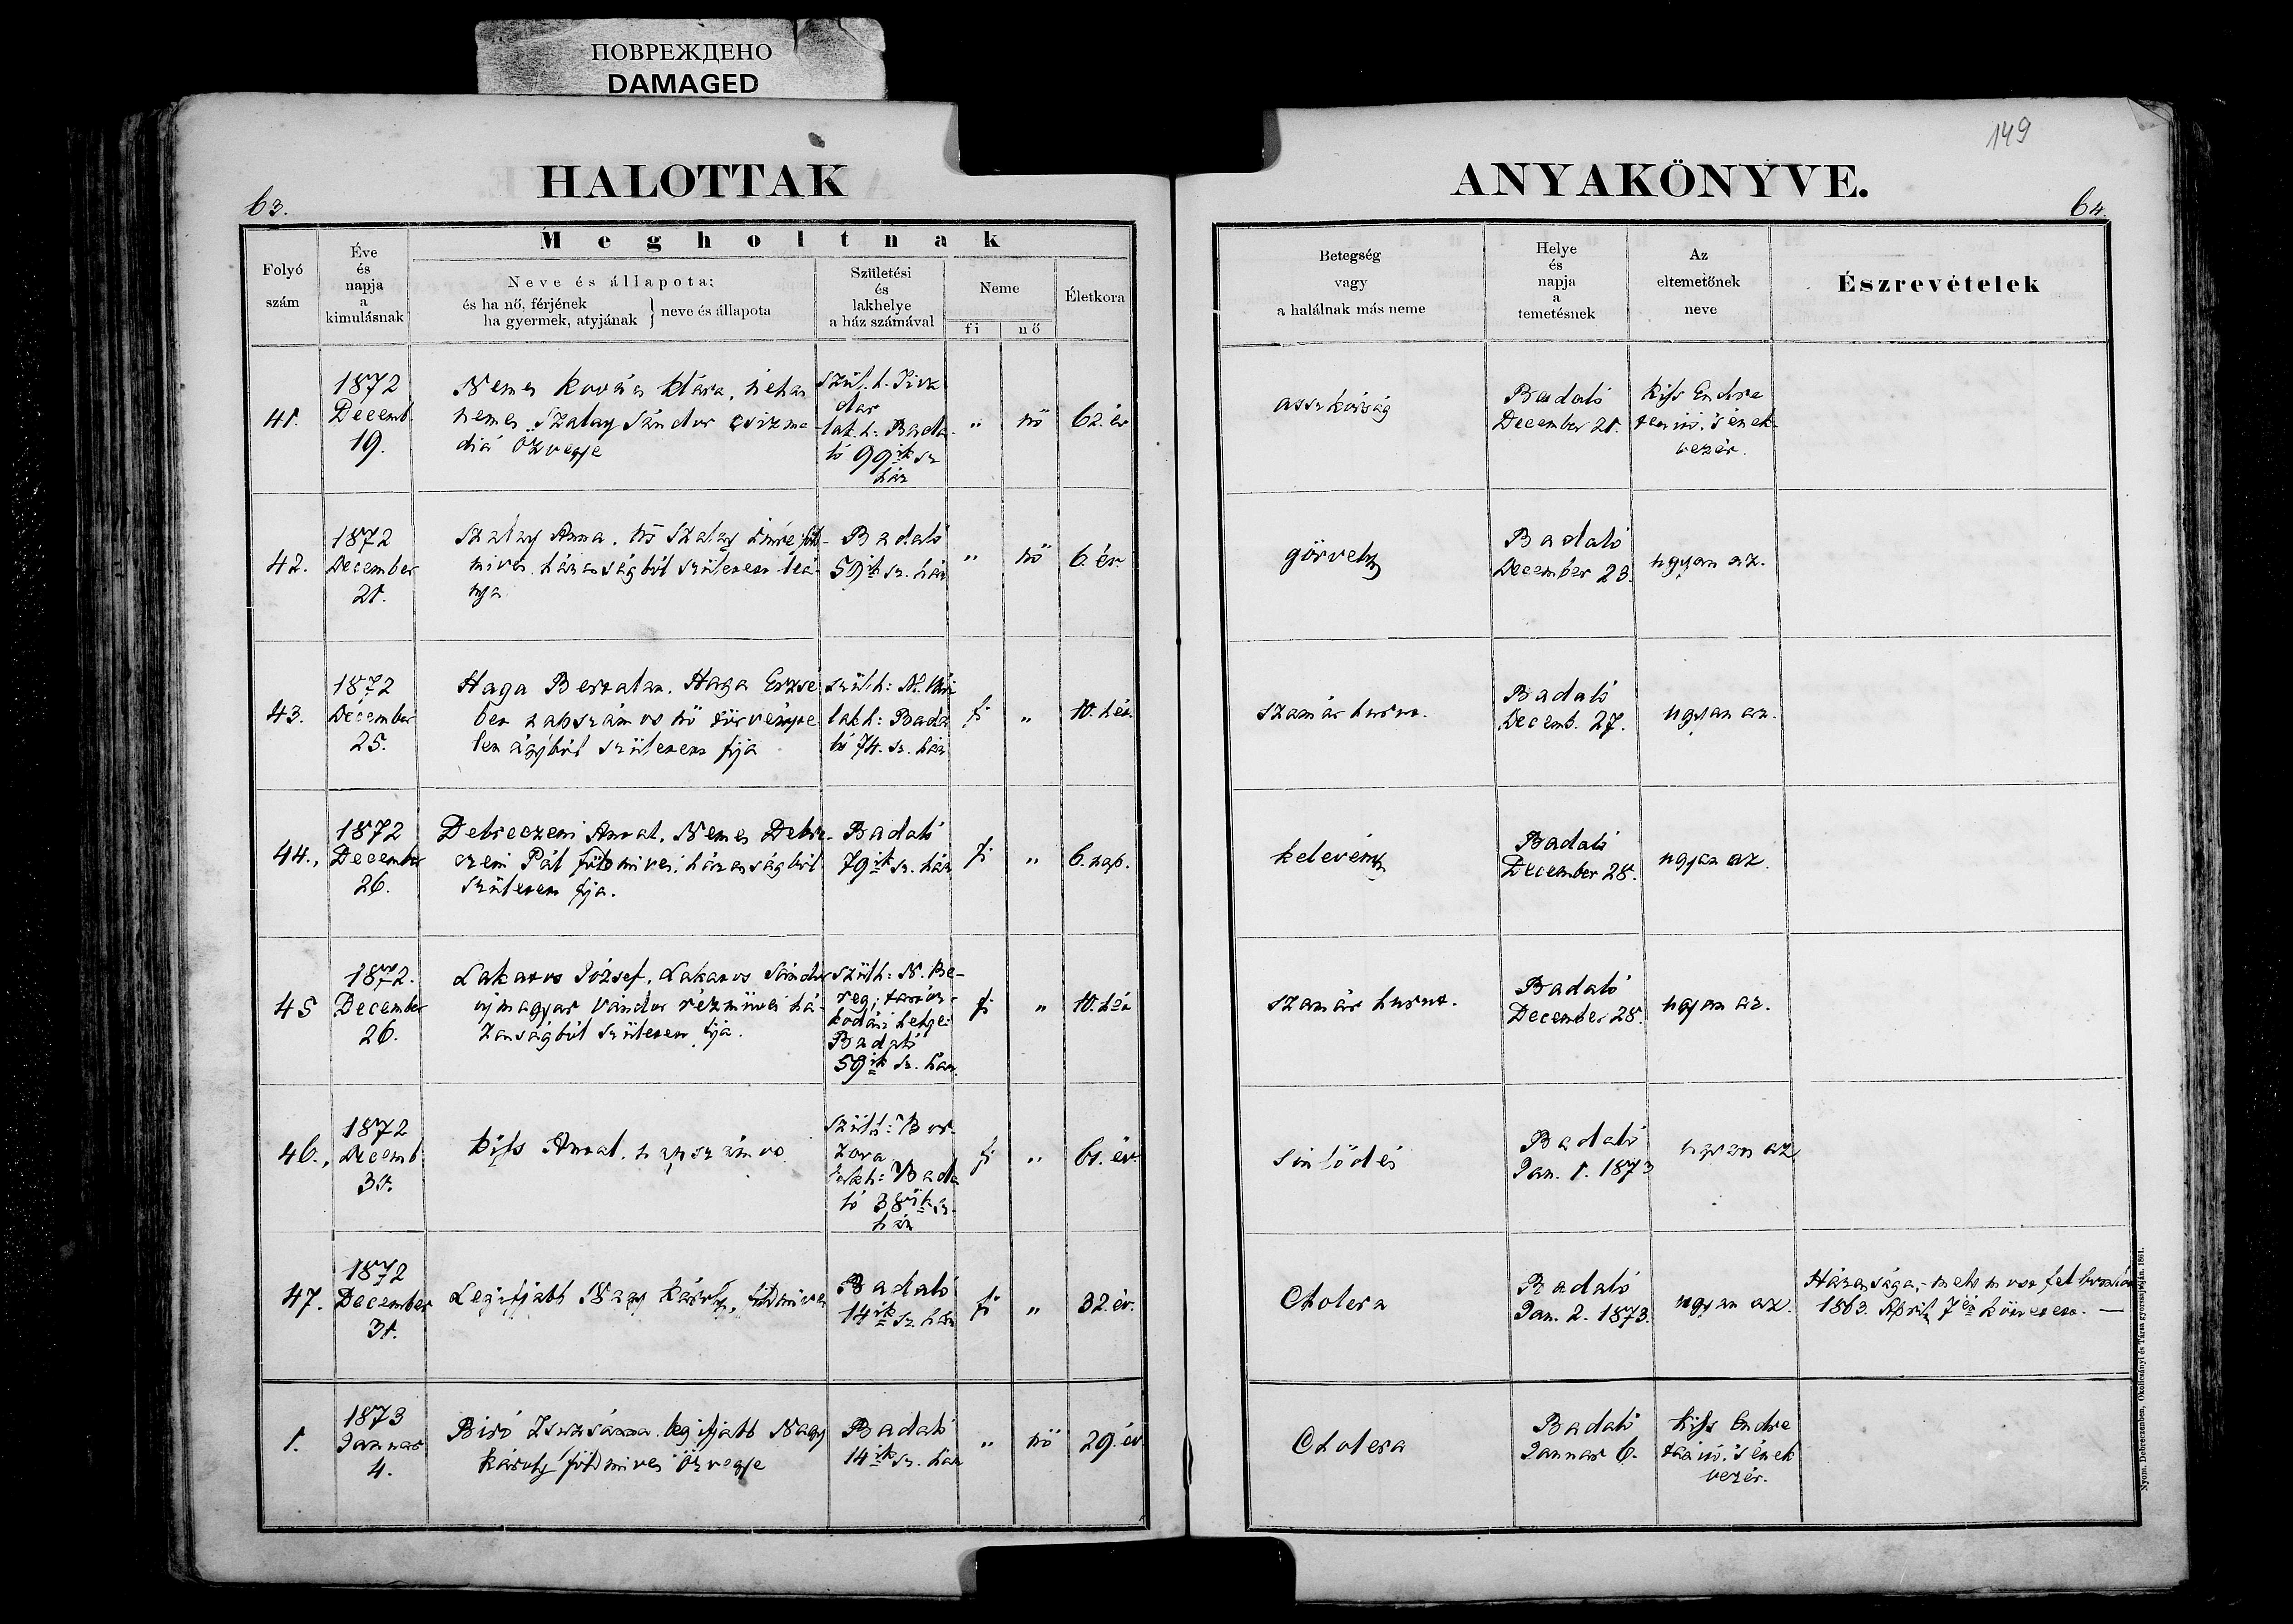 ПОВРЕЖДЕНО
DAMAGED
149
HALOTTAK
ANYAKÖNYVE.
63.
64.
Folyó
szám
Éve
és
napja
a
kimulásnak
Megholtnak
Neve és állapota;
és ha nő, férjének
ha gyermek, atyjának
neve és állapota
Születési
és
lakhelye
a ház számával
Neme
fi
nő
Életkora
Betegség
vagy
a halálnak más neme
Helye
és
napja
a
temetésnek
Az
eltemetőnek
neve
Észrevételek
41.
1872
Decemb.
19.
Nemes Kovács Klára, néhai
nemes Szalay Sándor csizma-
dia özvegye
szül. h.
lak. h: Bada-
ló 99ik sz
ház
"
nő
62. év
asszkórság
Badaló
December 21.
Kiss Endre
ének-
vezér.
42.
1872
December
21.
Szalay Anna. ns Szalay Imre föld-
mives házasságból született leá-
nya
Badaló
59ik sz. ház
"
nő
6. év
görvely
Badaló
December 23.
ugyan az.
43.
1872
December
25.
Haga Bertalan. Haga Erzsé
bet napszámos nő törvényte
len ágyból született fija
szül. h:
lak h: Bada
ló 74. sz. ház
fi
"
10. hó.
szamár hurut.
Badaló
Decemb. 27.
ugyan az.
44.
1872
December
26.
Debreczeni Antal. Nemes Debre-
czeni Pál földmives házasságból
született fija.
Badaló
79ik sz. ház
fi
"
6. nap.
kelevény
Badaló
December 28.
ugyan az.
45
1872.
December
26.
Lakatos József, Lakatos Sándor
ujmagyar vándor rézmüves há-
zasságból született fija.
szül h: N. Be-
reg; tartóz-
kodási helye:
Badaló
59ik sz. ház.
fi
"
10. hó
szamár hurut.
Badaló
December 28.
ugyan az.
46.
1872
Decemb
31.
Kiss Antal. napszámos
szül h: Bor-
zova
lak h: Bada
ló 38ik sz.
ház
fi
"
61. év
sinlődés
Badaló
Jan. 1. 1873
ugyan az
47.
1872
December
31.
Legifjabb Nagy Károly, földmives
Badaló
14ik sz. ház
fi
"
32. év.
Cholera
Badaló
Jan. 2. 1873.
ugyan az.
Házassága,
1863. April 7én köttetett. —
1.
1873
Januar
4.
Biró Zsuzsánna. legifjabb Nagy
Károly földmives özvegye
Badaló
14ik sz. ház
"
nő
29. év
Cholera
Badaló
Januar 6.
Kiss Endre
ének
vezér.
Nyom. Debreczenben, Okolicsányi és Társa gyorssajtóján. 1861.